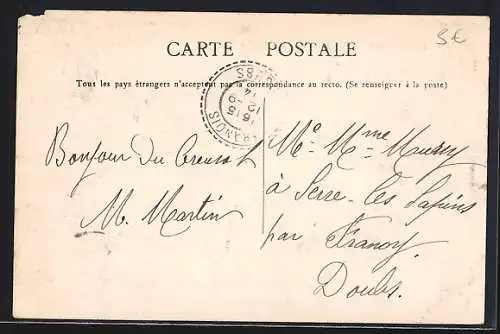 3€
CARTE POSTALE
Tous les pays étrangers n'acceptent pas la correspondance au recto. (Se renseigner à la poste)
FRANOIS
DOUBS
Bonjour du Creusot
M. Martin
Mr Mme
à Serre-les Sapins
par Franois
Doubs.